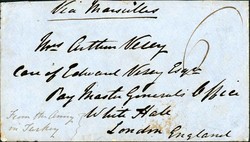 Via Marseilles
Mrs Arthur Vesey
Care of Edward Vesey Esqre
Pay Master Generals Office
White Hall
London England
From the Army
in Turkey